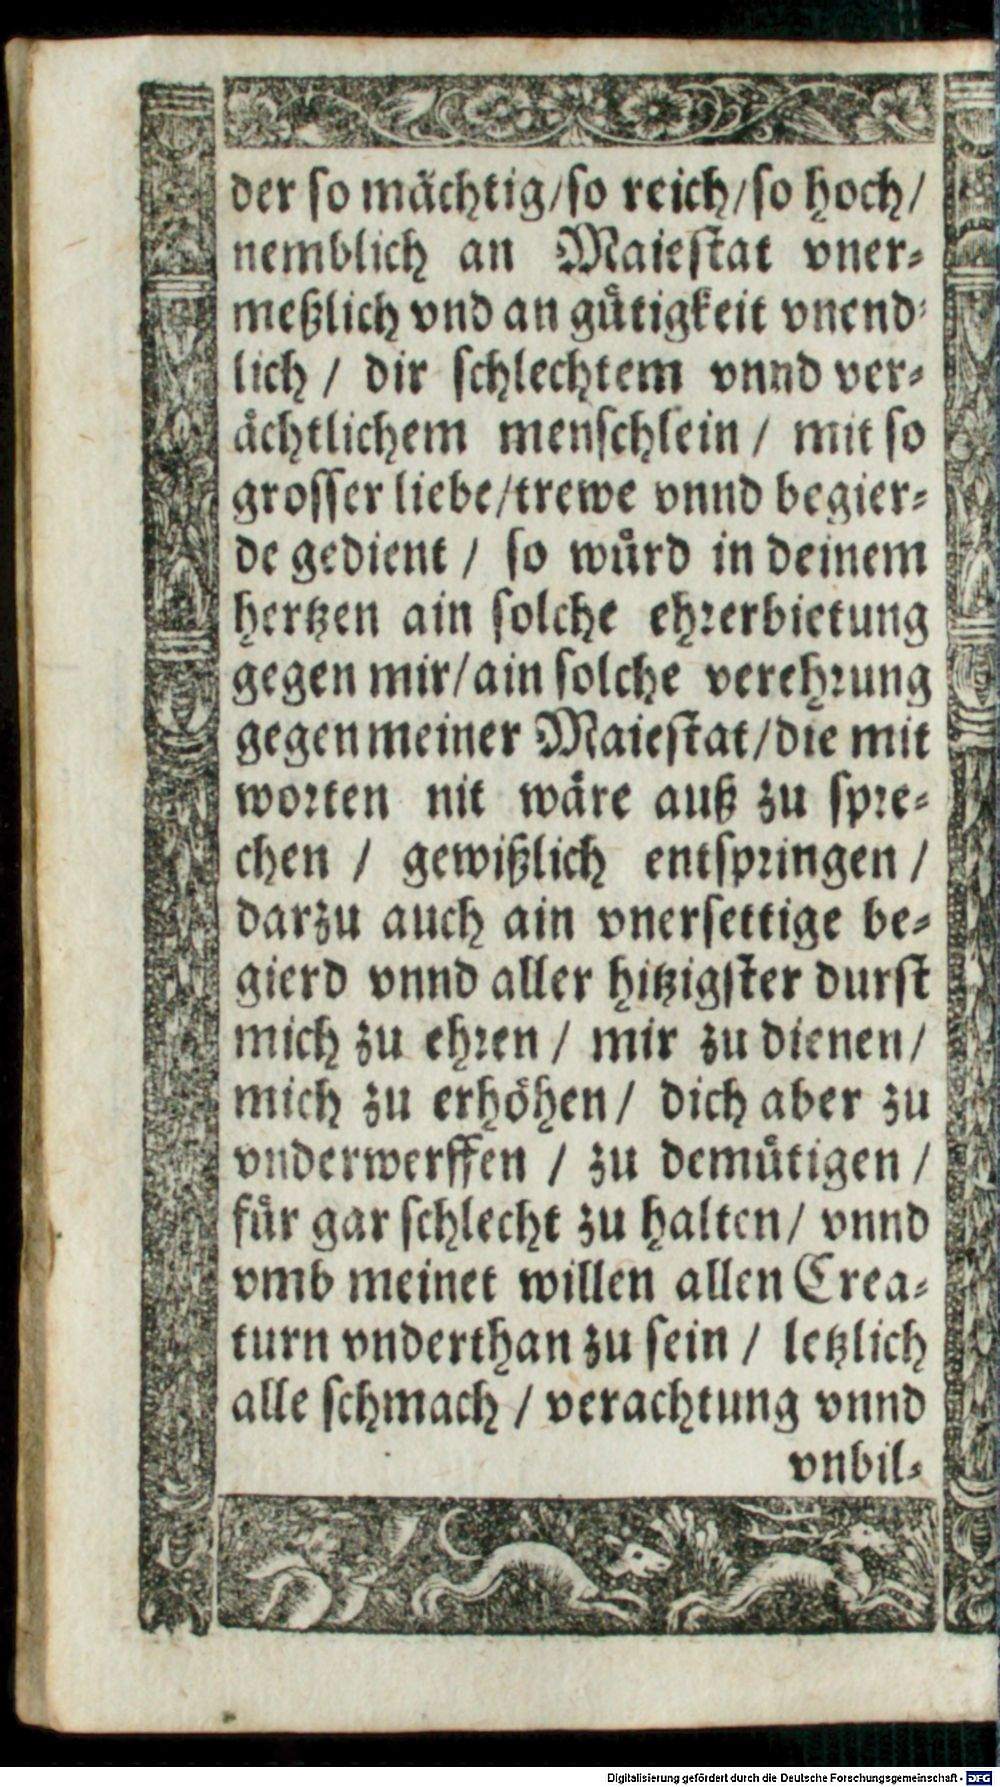 der so mächtig/so reich/so hoch/
nemblich an Maiestat vner-
meßlich vnd an gütigkeit vnend-
lich / dir schlechtem vnnd ver-
ächtlichem menschlein / mit so
grosser liebe/trewe vnnd begier-
de gedient / so würd in deinem
hertzen ain solche ehrerbietung
gegen mir/ain solche verehrung
gegen meiner Maiestat/die mit
worten nit wäre auß zu spre-
chen / gewißlich entspringen /
darzu auch ain vnersettige be-
gierd vnnd aller hitzigster durst
mich zu ehren / mir zu dienen/
mich zu erhöhen/ dich aber zu
vnderwerffen / zu demütigen /
für gar schlecht zu halten/ vnnd
vmb meinet willen allen Crea-
turn vnderthan zu sein / letzlich
alle schmach / verachtung vnnd
vnbil-
Digitalisierung gefördert durch die Deutsche Forschungsgemeinschaft - DFG